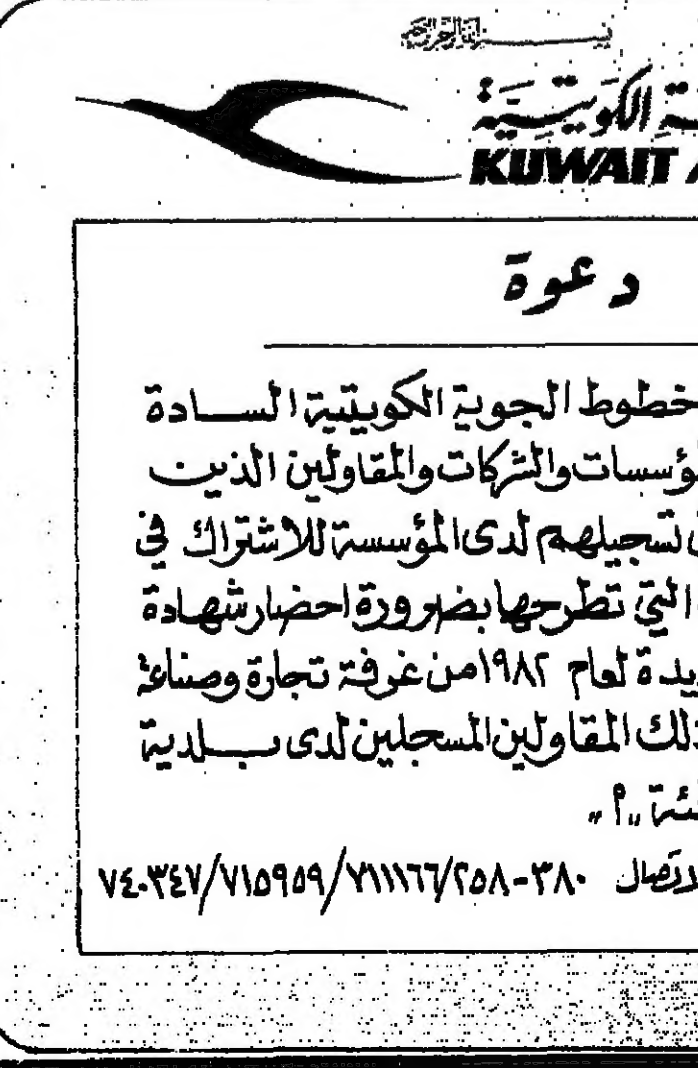 بسم الله الرحمن الرحيم
ة الكويتية
KUWAIT
دعوة
خطوط الجوية الكويتية السادة
ؤسسات والشركات والمقاولين الذين
تسجيلهم لدى المؤسسة للاشتراك في
التي تطرحها بضرورة احضار شهادة
يدة لعام ١٩٨٢ من غرفة تجارة وصناعة
ذلك المقاولين المسجلين لدى بلدية
ئة "أ"
لاتصال ٧٤٠٣٤٧/٧١٥٩٥٩/٧١١١٦٦/٢٥٨-٣٨٠